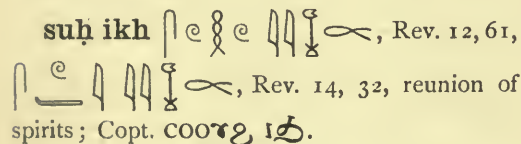 suḥ ikh 𓋴𓏲𓎛𓏲𓇌, Rev. 12, 61,
𓋴𓏲𓇋𓇌, Rev. 14, 32, reunion of
spirits; Copt. ⲥⲟⲟⲩϩ ⲓϧ.